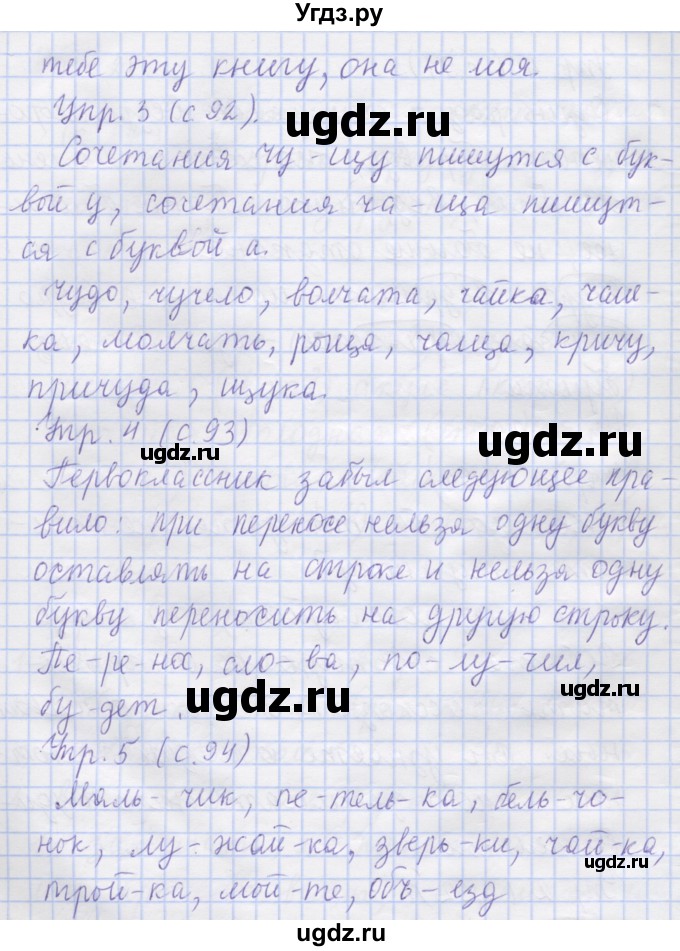 Угдз.ру
тебе эту книгу, она не моя.
Упр. 3 (с 92).
ugdz.ru
Сочетания чу - щу пишутся с бук-
вой у, сочетания ча - ща пишут-
ся с буквой а.
Чудо, чучело, волчата, чайка, чаш-
ка, молчать, роща, чаща, кричу,
причуда, щука.
Упр. 4 (с 93)
ugdz.ru
ugdz.ru
Первоклассник забыл следующее пра-
вило: при переносе нельзя одну букву
оставлять на строке и нельзя одну
букву переносить на другую строку.
Пе-ре-нос, сло-ва, по-лу-чил,
ugdz.ru
бу-дет.
ugdz.ru
Упр. 5 (с. 94)
Маль-чик, пе-тель-ка, бель-чо-
нок, лу-жай-ка, зверь-ки, чай-ка,
ugdz.ru
трой-ка, мой-те, объ-езд
ugdz.ru